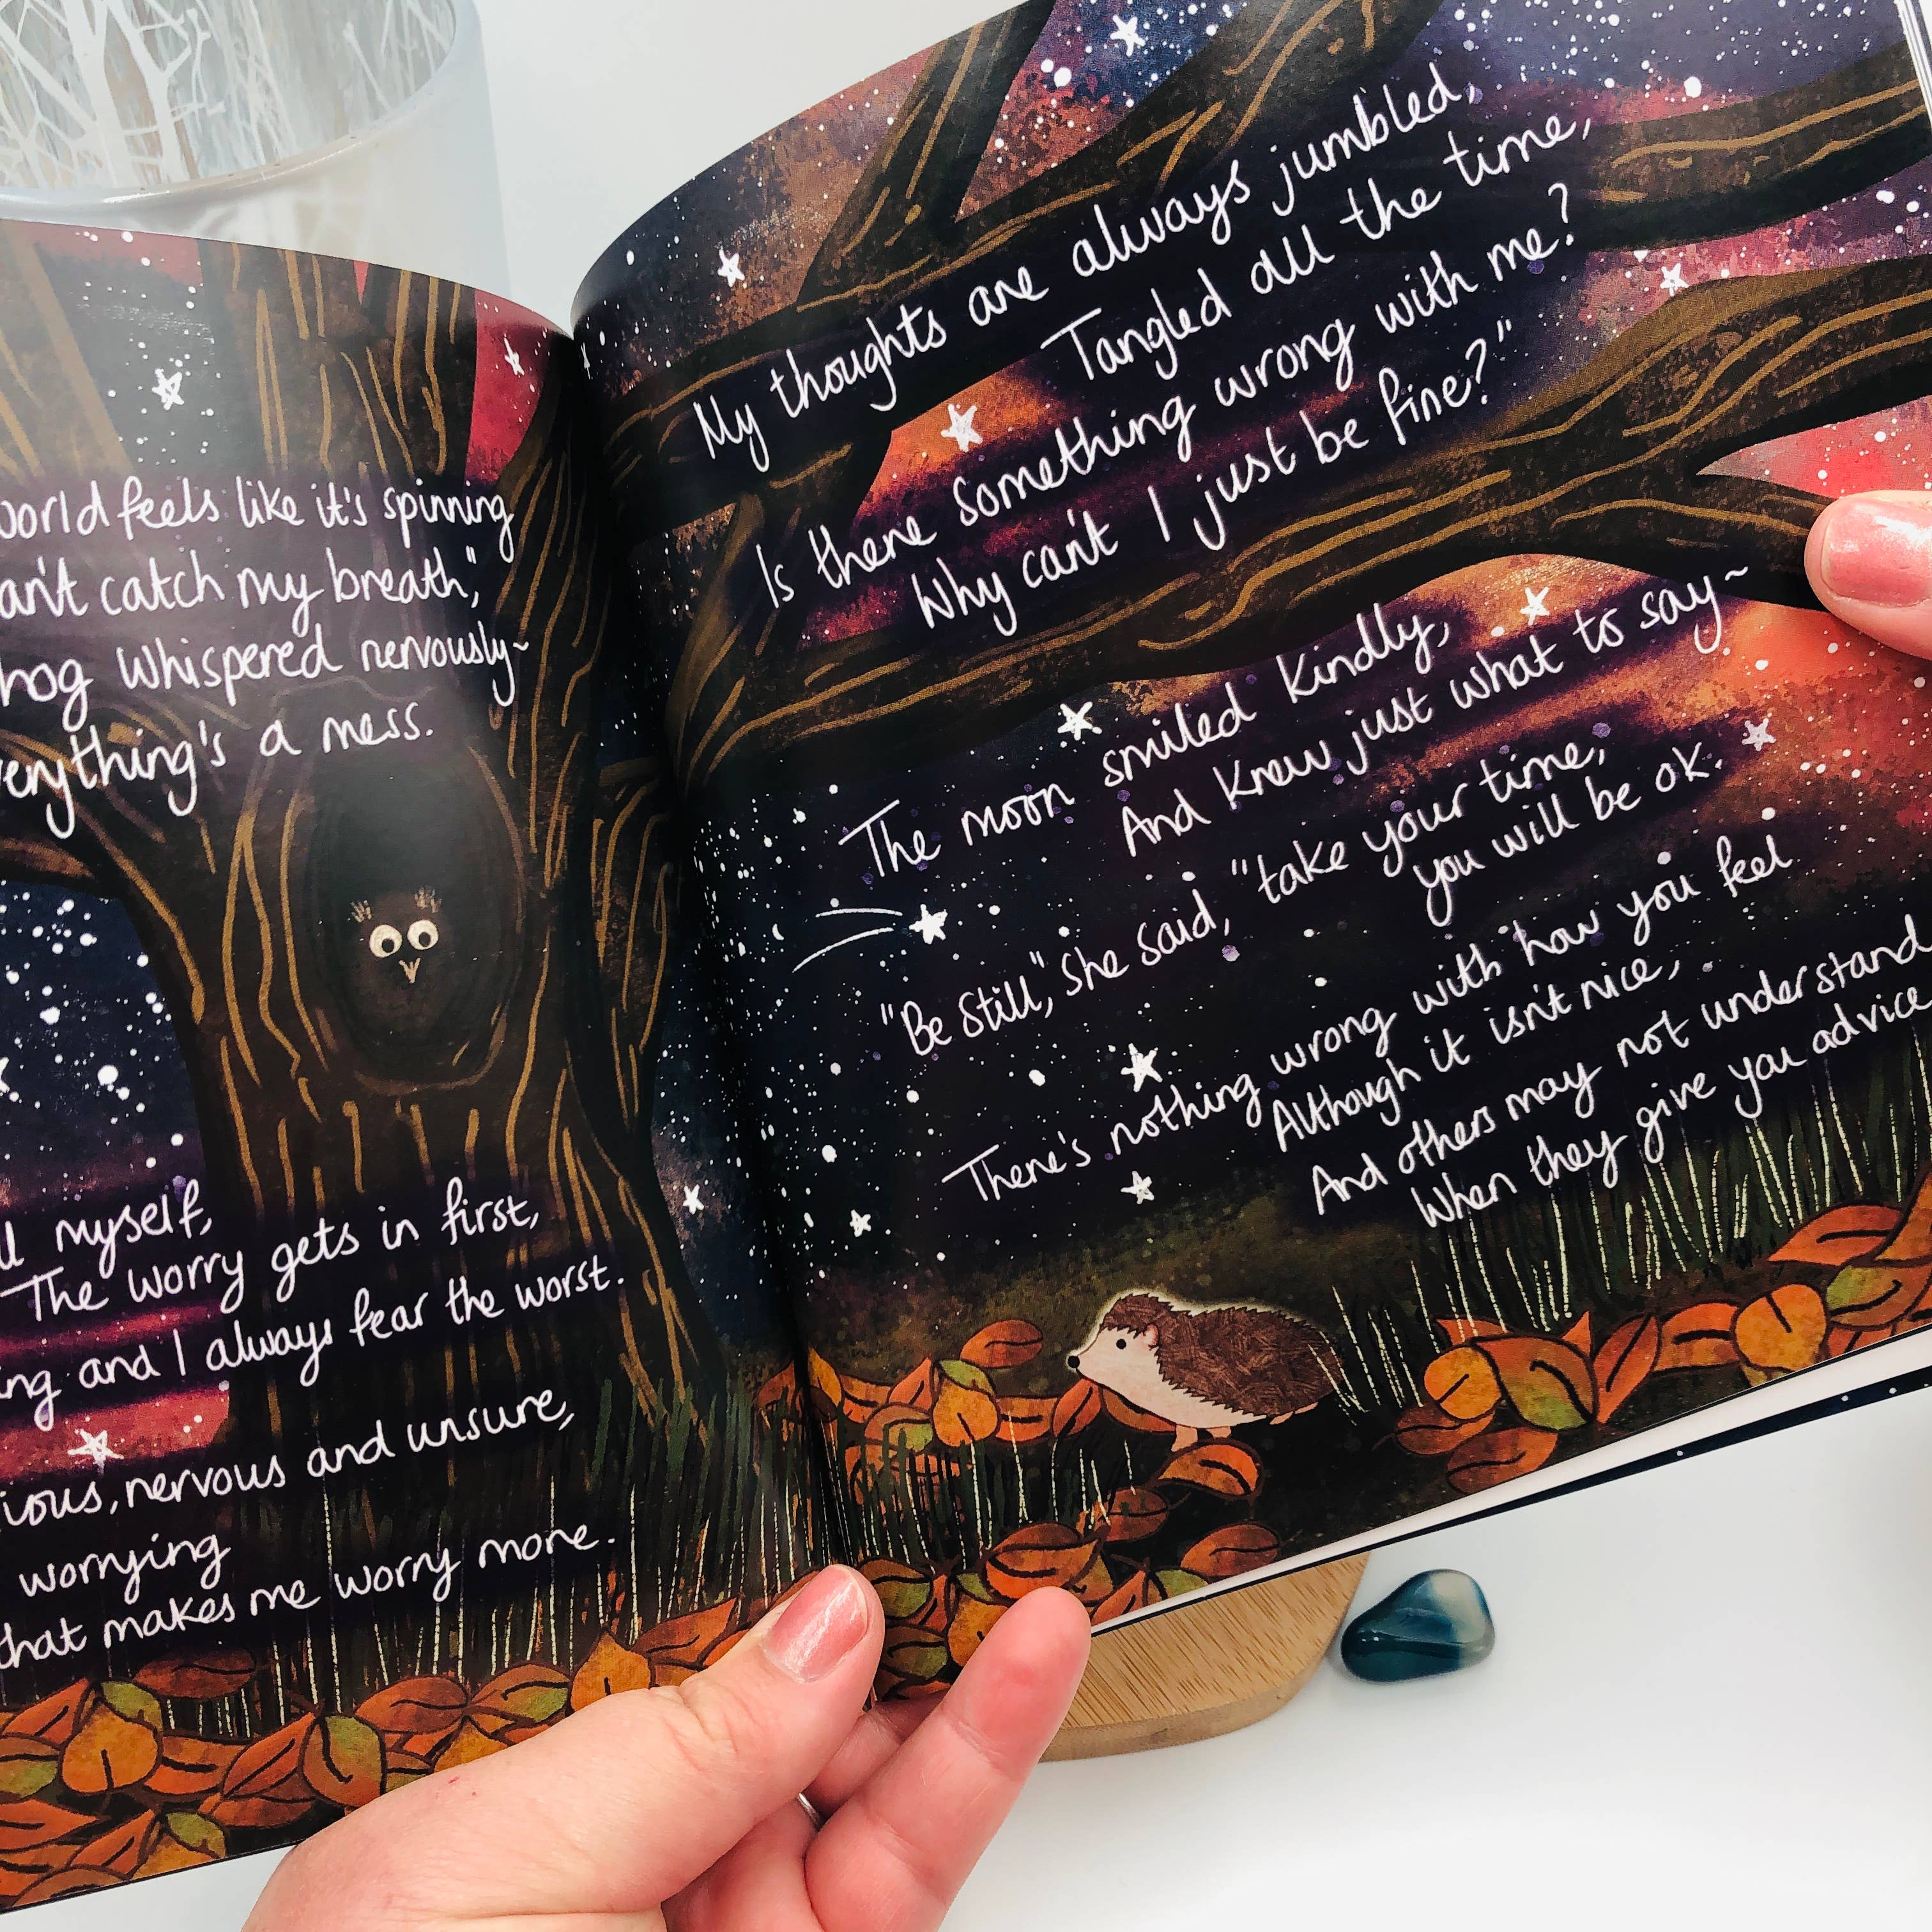 feels like it's spinning
catch my breath,"
whispered nervously~
a mess.
myself,
The worry gets in first,
and I always fear the worst.
nervous and unsure,
worrying
that makes me worry more.
My thoughts are always jumbled,
Tangled all the time,
Is there something wrong with me?
Why can't I just be fine?"
The moon smiled kindly,
And knew just what to say~
"Be still," she said, "take your time,
you will be ok.
There's nothing wrong with how you feel
Although it isn't nice,
And others may not understand
When they give you advice